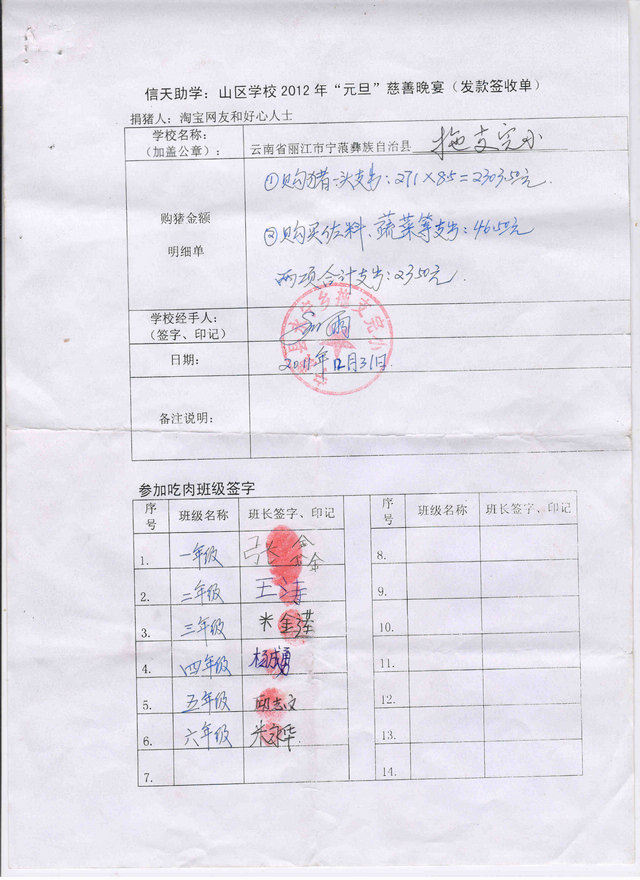 信天助学：山区学校 2012 年“元旦”慈善晚宴（发款签收单）
捐猪人：淘宝网友和好心人士
学校名称：
（加盖公章）：
云南省丽江市宁蒗彝族自治县 拖支完小
购猪金额
明细单
①购猪一头支出：271×8.5=2303.50元.
②购买佐料、蔬菜等支出：46.50元
两项合计支出：2350元.
学校经手人：
（签字、印记）
日期：
2011年12月31日.
备注说明：
参加吃肉班级签字
序号 班级名称 班长签字、印记 序号 班级名称 班长签字、印记
1. 一年级 张金金 8.
2. 二年级 王涛 9.
3. 三年级 米金泽 10.
4. 四年级 杨成勇 11.
5. 五年级 邱志文 12.
6. 六年级 13.
7. 14.